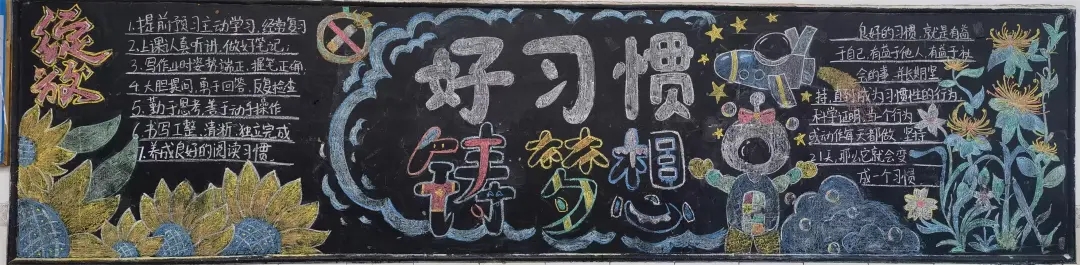 绽放
1.提前预习主动学习,经常复习
2.上课认真听讲,做好笔记;
3.写作业时姿势端正,握笔正确
4.大胆提问,勇于回答,反复检查
5.勤于思考,善于动手操作
6.书写工整,清晰,独立完成
7.养成良好的阅读习惯
好习惯
铸梦想
良好的习惯,就是有益
于自己,有益于他人,有益于社
会的事,并长期坚
持,直到成为习惯性的行为
科学证明,当一个行为
或动作每天都做,坚持
21天,那么它就会变
成一个习惯